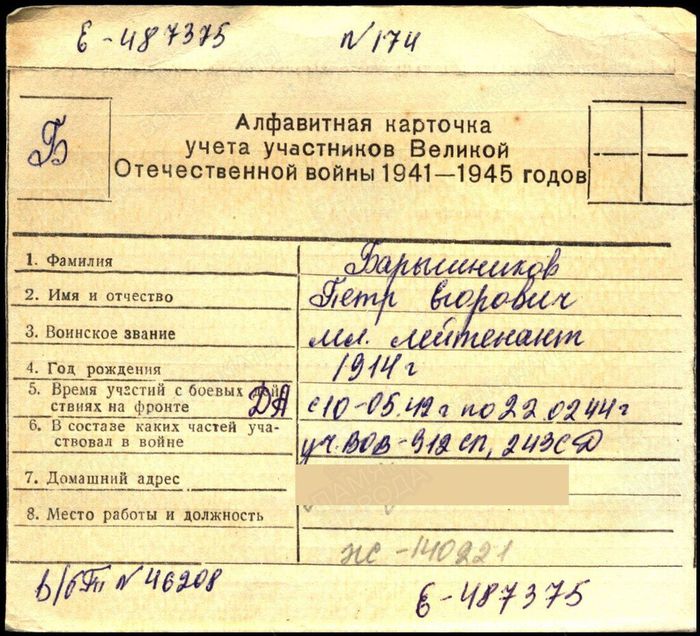 Е-487375 N174
Б
Алфавитная карточка
учета участников Великой
Отечественной войны 1941—1945 годов
1. Фамилия Барышников
2. Имя и отчество Петр Егорович
3. Воинское звание мл. лейтенант
4. Год рождения 1914 г
5. Время участий с боевых дей-
ствиях на фронте ДА с 10-05.42 г по 22.02 44 г
6. В составе каких частей уча-
ствовал в войне уч. ВОВ-912 СП, 243 СД
7. Домашний адрес
8. Место работы и должность
жс -140221
в/б N 46208 Е-487375